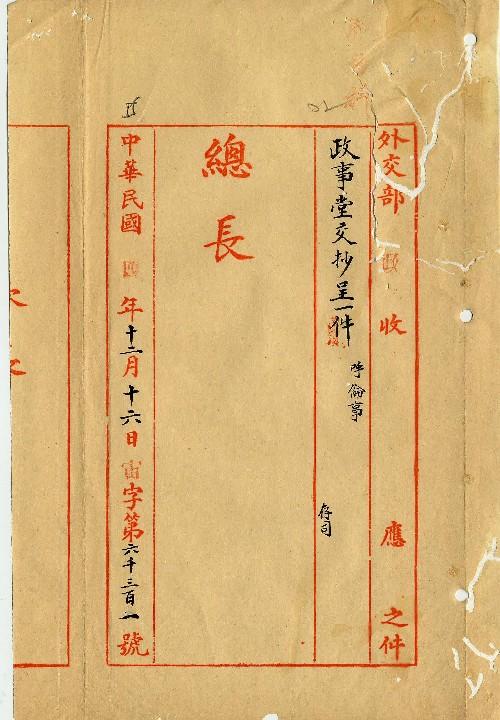 外交部 收 應 之件
政事堂交抄呈一件
呼倫事
存司
總長
中華民國四年十二月十六日宙字第六千三百一號